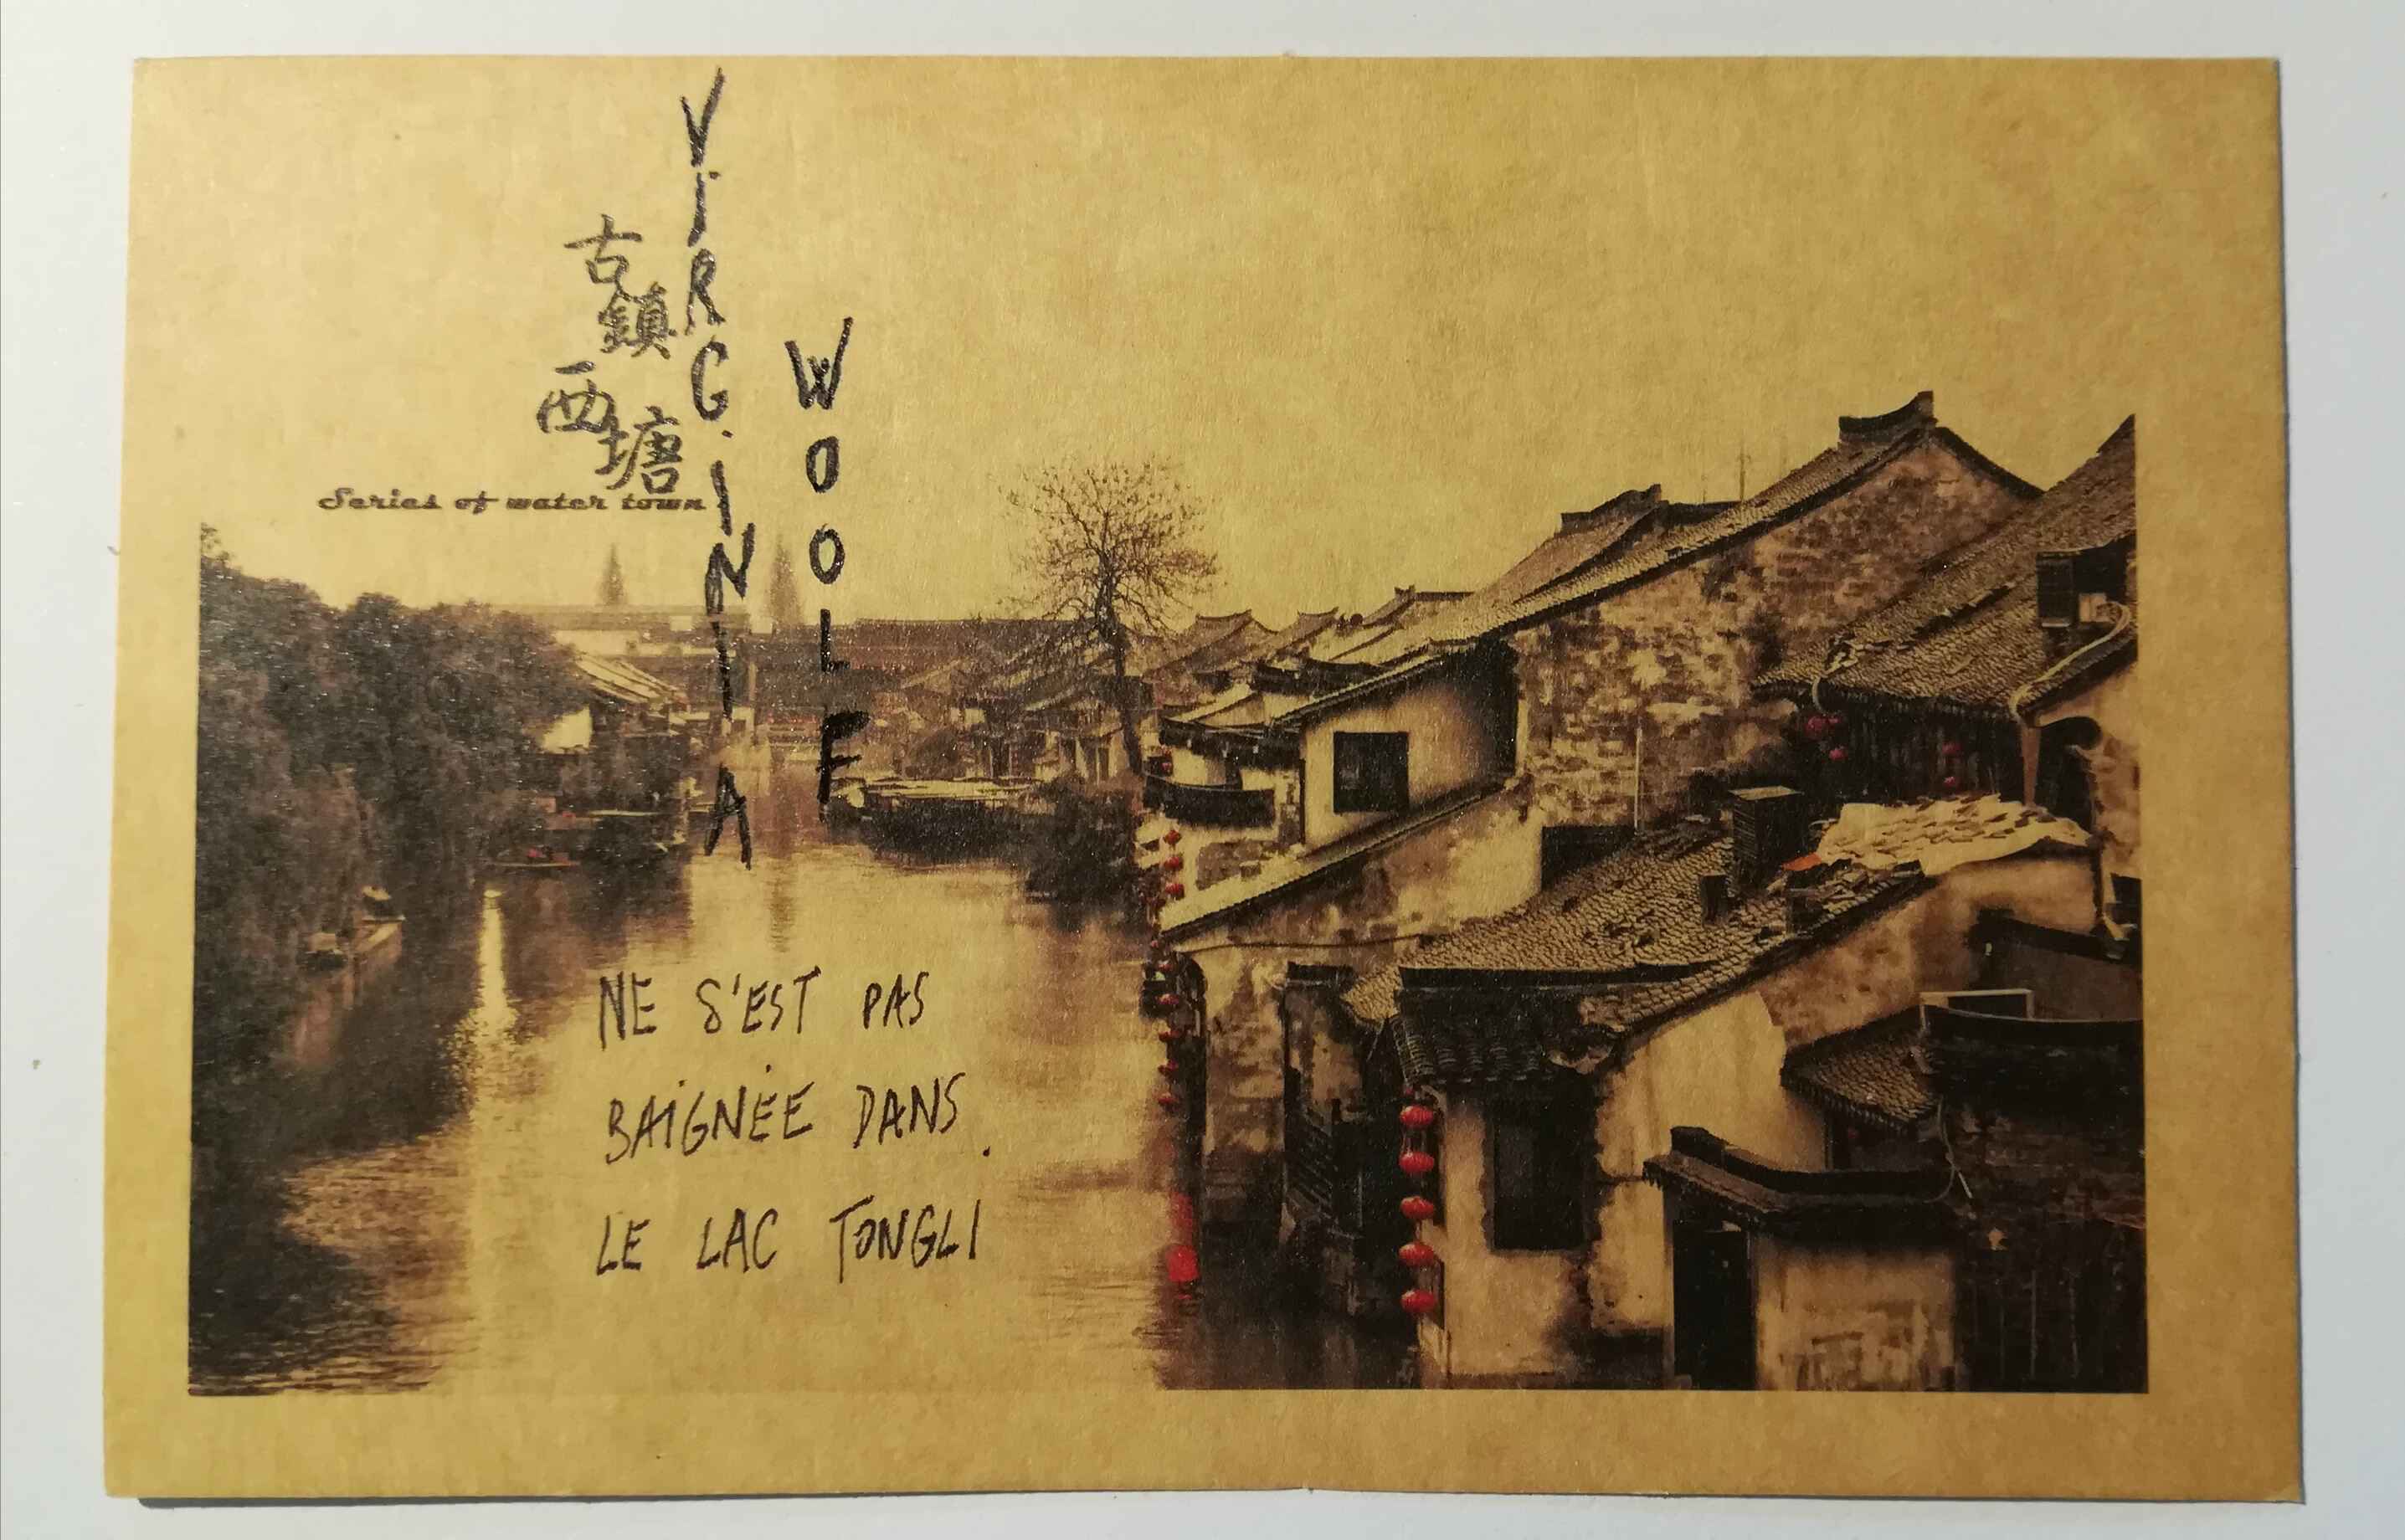 古鎮
西塘
Series of water town
VIRGINIA
WOOLF
NE S'EST PAS
BAIGNÉE DANS
LE LAC TONGLI